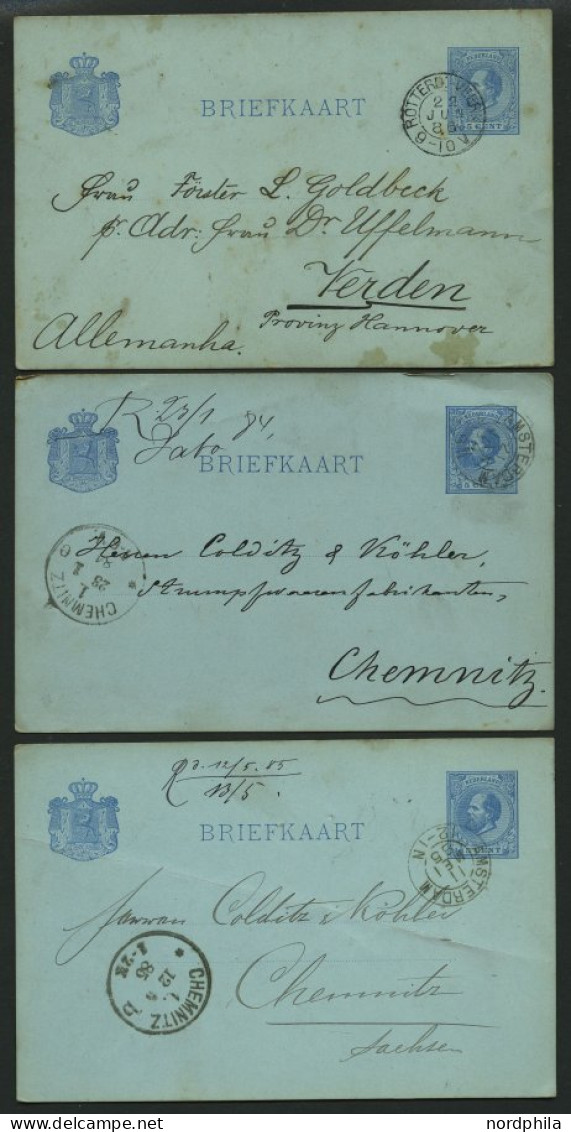 NEDERLAND
BRIEFKAART
5 CENT
ROTTERD
22
JUN
6-10V
Frau Förster L. Goldbeck
p. Adr: Frau Dr. Uffelmann
Verden
Provinz Hannover
Allemanha.
R 23/1 84,
Dato
NEDERLAND
BRIEFKAART
AMSTERDAM
CHEMNITZ
1
23
1
Herren Colditz & Köhler,
Strumpfwaarenfabrikanten,
Chemnitz.
12/5.85
13/5
NEDERLAND
BRIEFKAART
5 CENT
AMSTERDAM
CHEMNITZ
1.
12
85
Herren Colditz & Köhler
Chemnitz
Sachsen
www.delcampe.net
nordphila